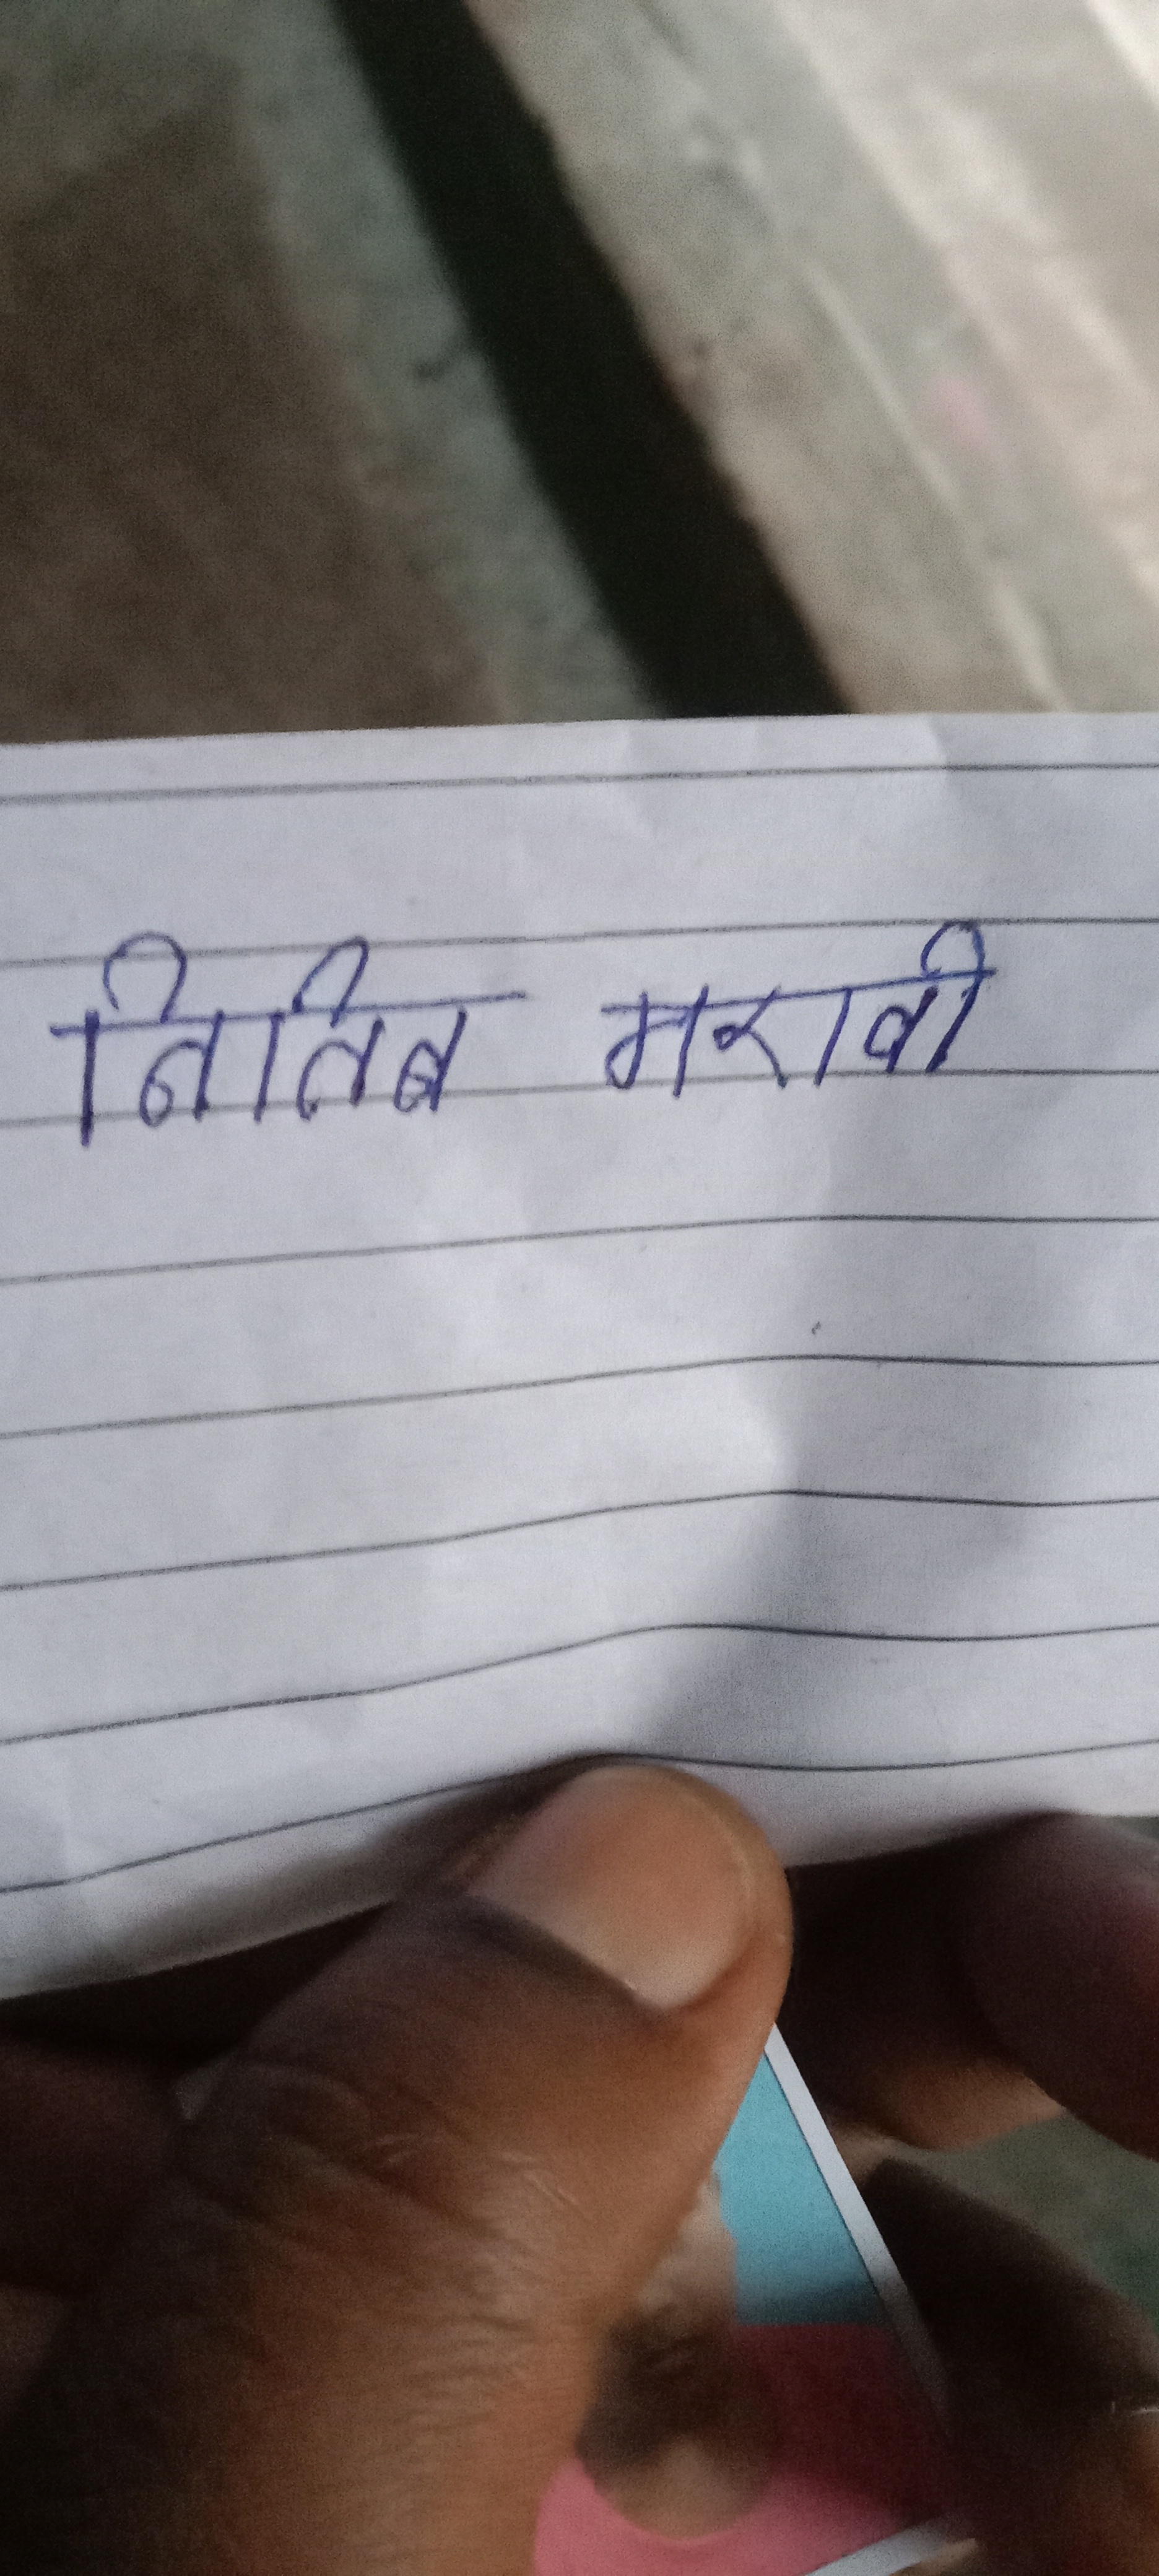 नितिन मरावी